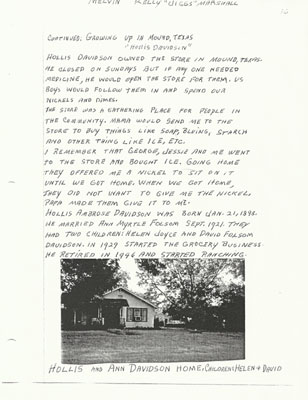 MELVIN KELLY "BIGGS" MARSHALL
CONTINUED, GROWING UP IN MOUND, TEXAS
"HOLLIS DAVIDSON"
HOLLIS DAVIDSON OWNED THE STORE IN MOUND, TEXAS.
HE CLOSED ON SUNDAYS BUT IF ANY ONE NEEDED
MEDICINE, HE WOULD OPEN THE STORE FOR THEM. US
BOYS WOULD FOLLOW THEM IN AND SPEND OUR
NICKELS AND DIMES.
THE STORE WAS A GATHERING PLACE FOR PEOPLE IN
THE COMMUNITY. MAMA WOULD SEND ME TO THE
STORE TO BUY THINGS LIKE SOAP, BLUING, STARCH
AND OTHER THING LIKE ICE, ETC.
I REMEMBER THAT GEORGE, JESSIE AND ME WENT
TO THE STORE ARE BOUGHT ICE. GOING HOME
THEY OFFERED ME A NICKEL TO SIT ON IT
UNTIL WE GOT HOME. WHEN WE GOT HOME,
THEY DID NOT WANT TO GIVE ME THE NICKEL.
PAPA MADE THEM GIVE IT TO ME.
HOLLIS AMBROSE DAVIDSON WAS BORN JAN. 21, 1898.
HE MARRIED ANN MYRTLE FOLSOM SEPT. 1921. THEY
HAD TWO CHILDREN: HELEN JOYCE AND DAVID FOLSOM
DAVIDSON. IN 1929 STARTED THE GROCERY BUSINESS.
HE RETIRED IN 1946 AND STARTED RANCHING.
HOLLIS AND ANN DAVIDSON HOME, CHILDREN: HELEN & DAVID